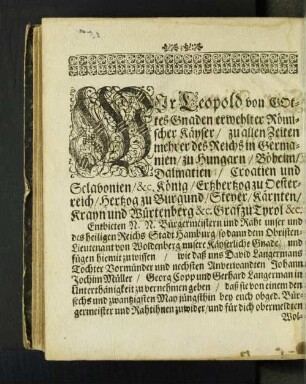 WIr Leopold von GOt-
tes Gnaden erwehlter Römi-
scher Käyser / zu allen Zeiten
mehrer des Reichs in Germa-
nien / zu Hungarn / Böheim /
Dalmatien / Croatien und
Sclabonien / &c. König / Ertzhertzog zu Oester-
reich / Hertzog zu Burgund / Steyer / Kärnten /
Krayn und Würtenberg &c. Graf zu Tyrol &c.
Entbieten N. N. Bürgermeistern und Raht unser und
des heiligen Reichs Stadt Hamburg / so dann dem Obristen-
Lieutenant von Woldenberg unsere Käyserliche Gnade / und
fügen hiemit zu wissen / wie daß uns David Langermans
Tochter Vormünder und nechsten Anverwandten Johann
Jochim Müller / Georg Copp und Gerhard Langerman in
Unterthänigkeit zu vernehmen geben / daß sie von einem den
sechs und zwantzigsten May jüngsthin bey euch obged. Bür-
germeister und Rahtihnen zuwider / und für dich obermeldten
Wol-